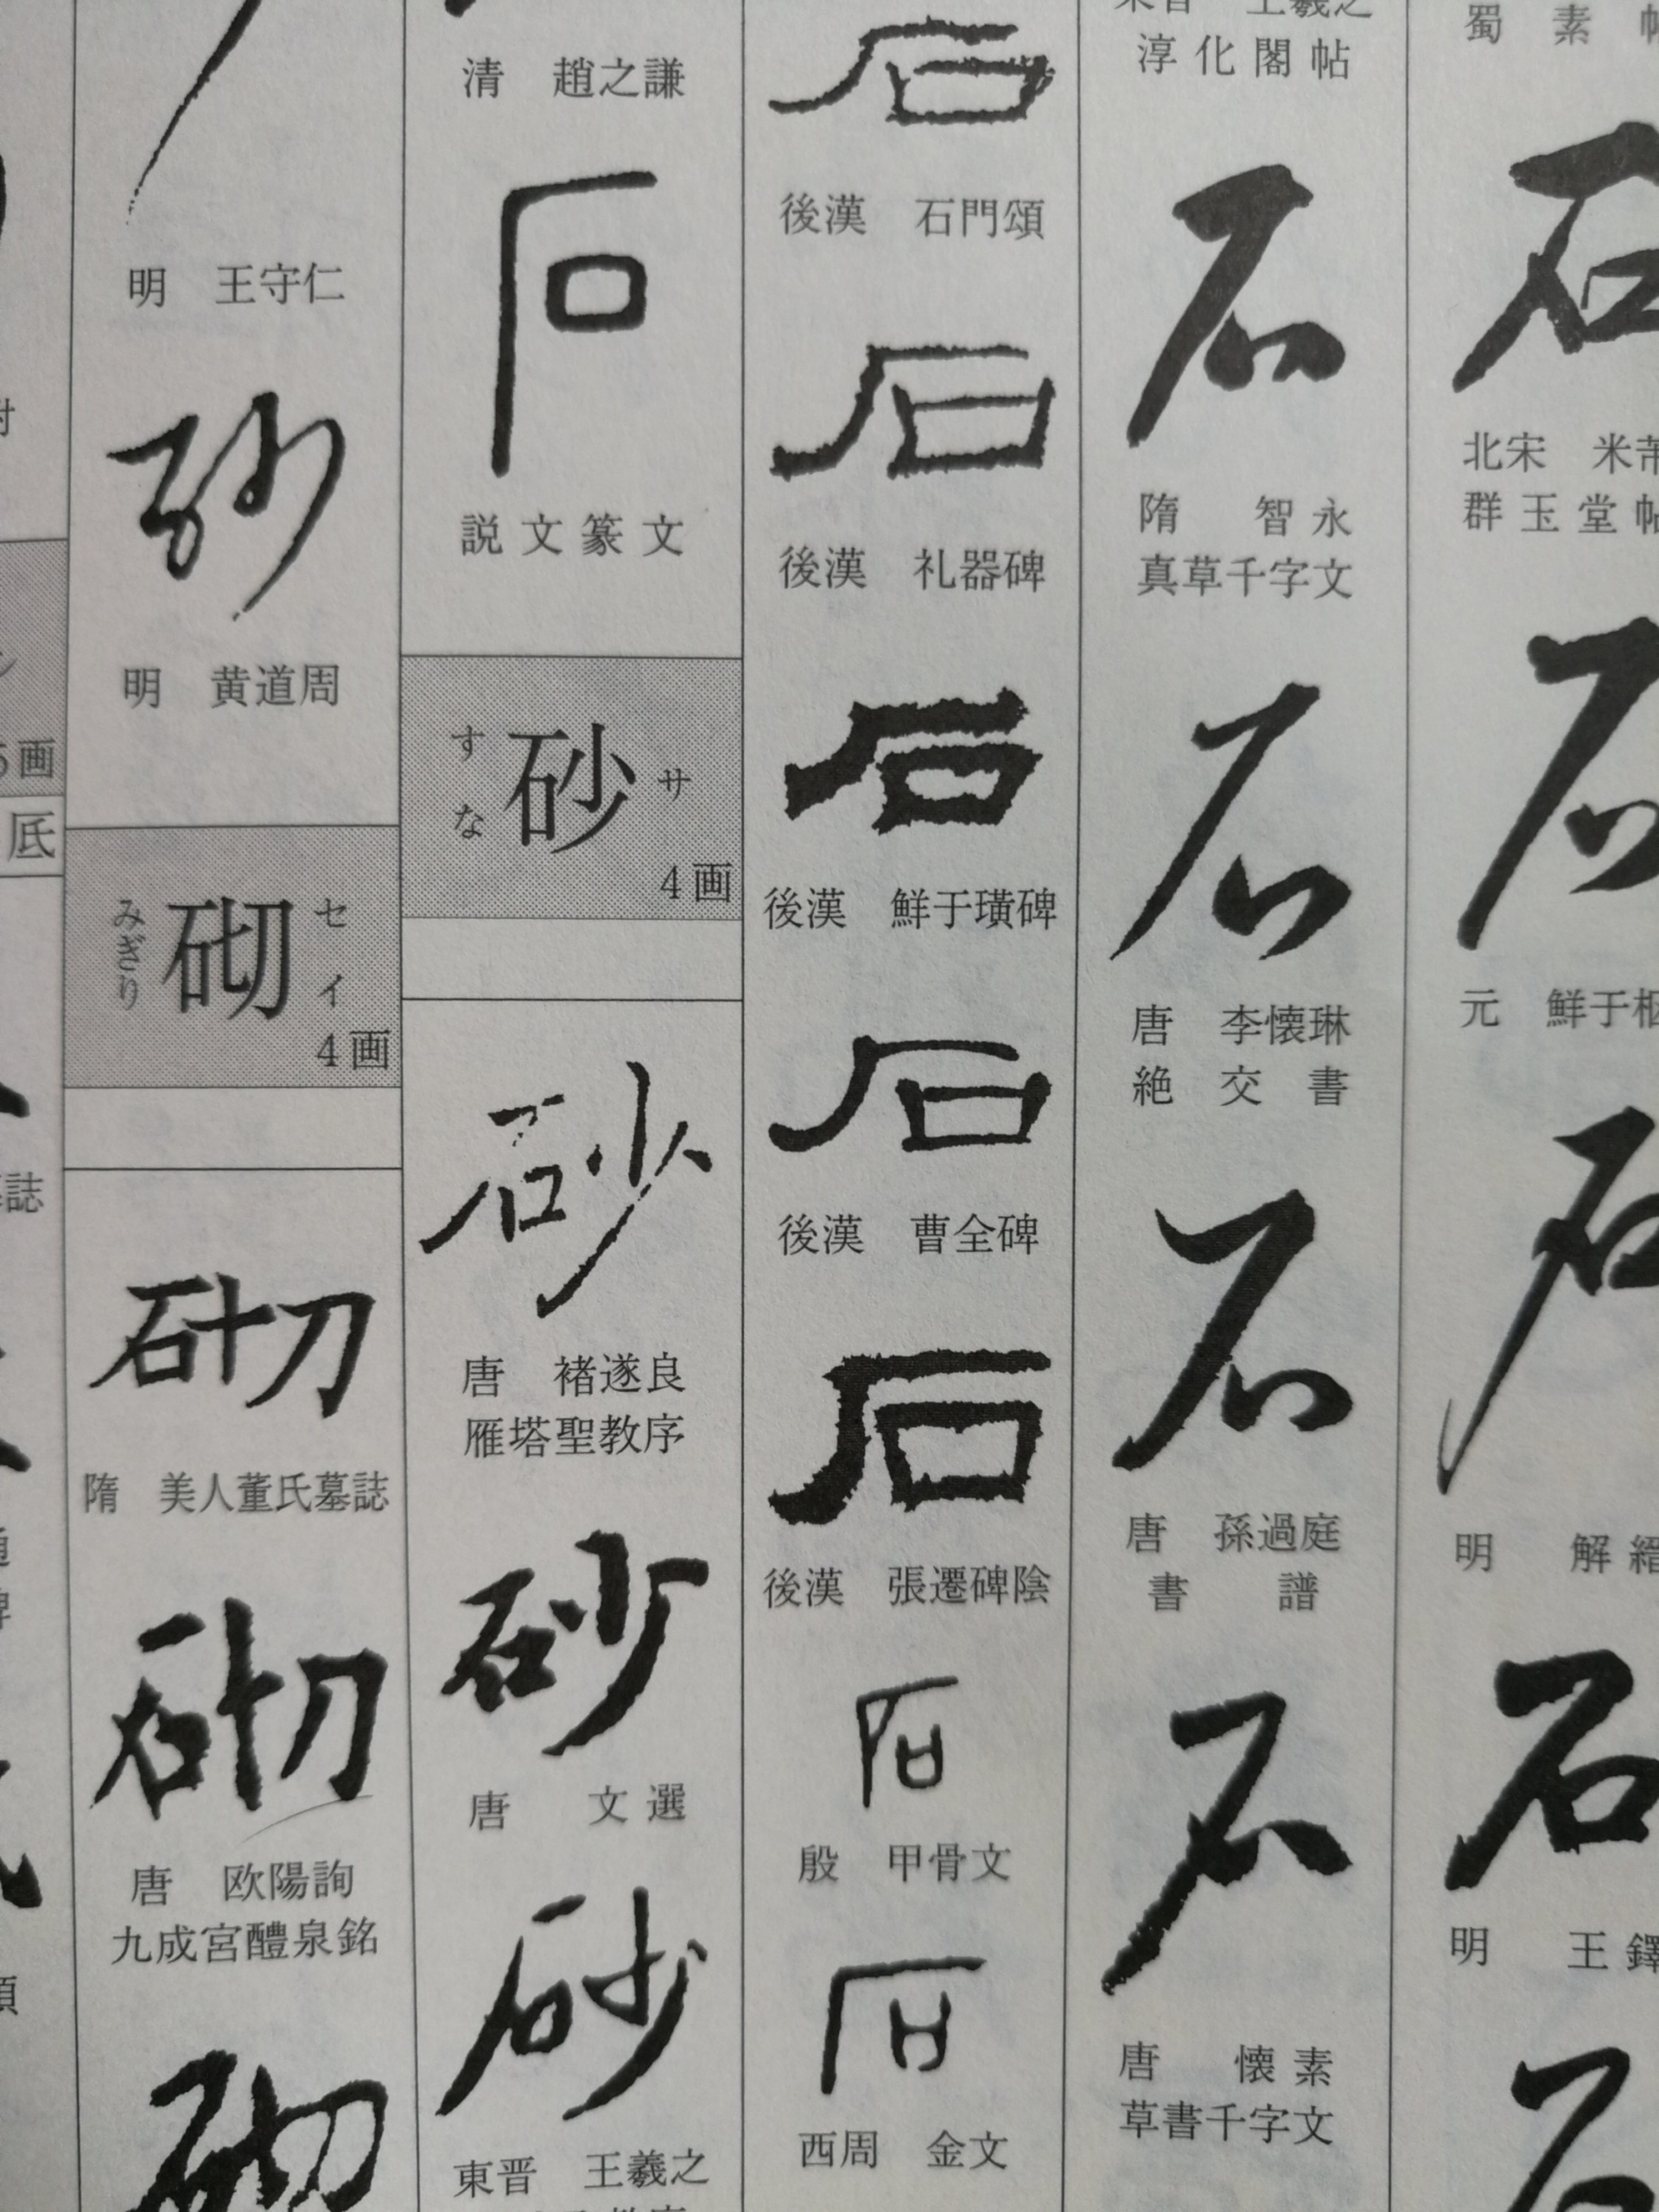 蜀素
石
北宋 米芾
群玉堂帖
石
元 鮮于枢
石
明 解縉
石
明 王鐸
石
淳化閣帖
石
隋 智永
真草千字文
石
唐 李懐琳
絶交書
石
唐 孫過庭
書譜
石
唐 懐素
草書千字文
石
後漢 石門頌
石
後漢 礼器碑
石
後漢 鮮于璜碑
石
後漢 曹全碑
石
後漢 張遷碑陰
石
殷 甲骨文
石
西周 金文
清 趙之謙
石
説文篆文
サ
砂
すな
4画
砂
唐 褚遂良
雁塔聖教序
砂
唐 文選
砂
東晋 王羲之
明 王守仁
砂
明 黄道周
セイ
砌
みぎり
4画
砌
隋 美人董氏墓誌
砌
唐 欧陽詢
九成宮醴泉銘
砌
5画
底
誌